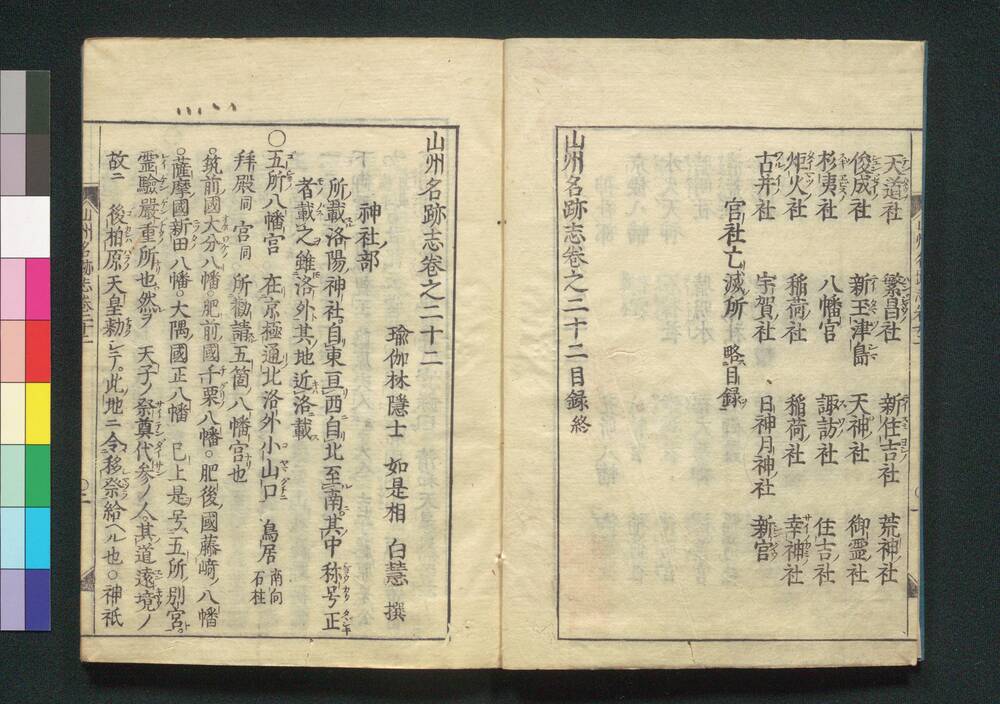 天道社 繁昌社 新住吉社 荒神社
俊成社 新玉津島 天神社 御霊社
杉夷社 八幡宮 諏訪社 住吉社
炸火社 稲荷社 稲荷社 幸神社
古井社 宇賀社 日神月神社 新宮
宮社亡滅所 略目録
山州名跡志巻之二十二目録終
山州名跡志巻之二十二
瑜伽林隠士 如是相 白慧 撰
神社部
所載洛陽神社自東亘西自北至南其中称号正
者載之雖洛外其地近洛載
〇五所八幡宮 在京極通北洛外小山口 鳥居 南向 石柱
拝殿同 宮同 所勧請五箇八幡宮也
筑前國大分八幡肥前國千栗八幡。肥後國藤﨑八幡
。薩摩國新田八幡。大隅國正八幡 已上是号五所別宮
霊驗嚴重所也然ヲ 天子ノ祭奠代参ノ人其道遠境ノ
故ニ 後柏原天皇勅シテ此地ニ令移祭給ヘル也。神祇
山州名跡志巻二十二